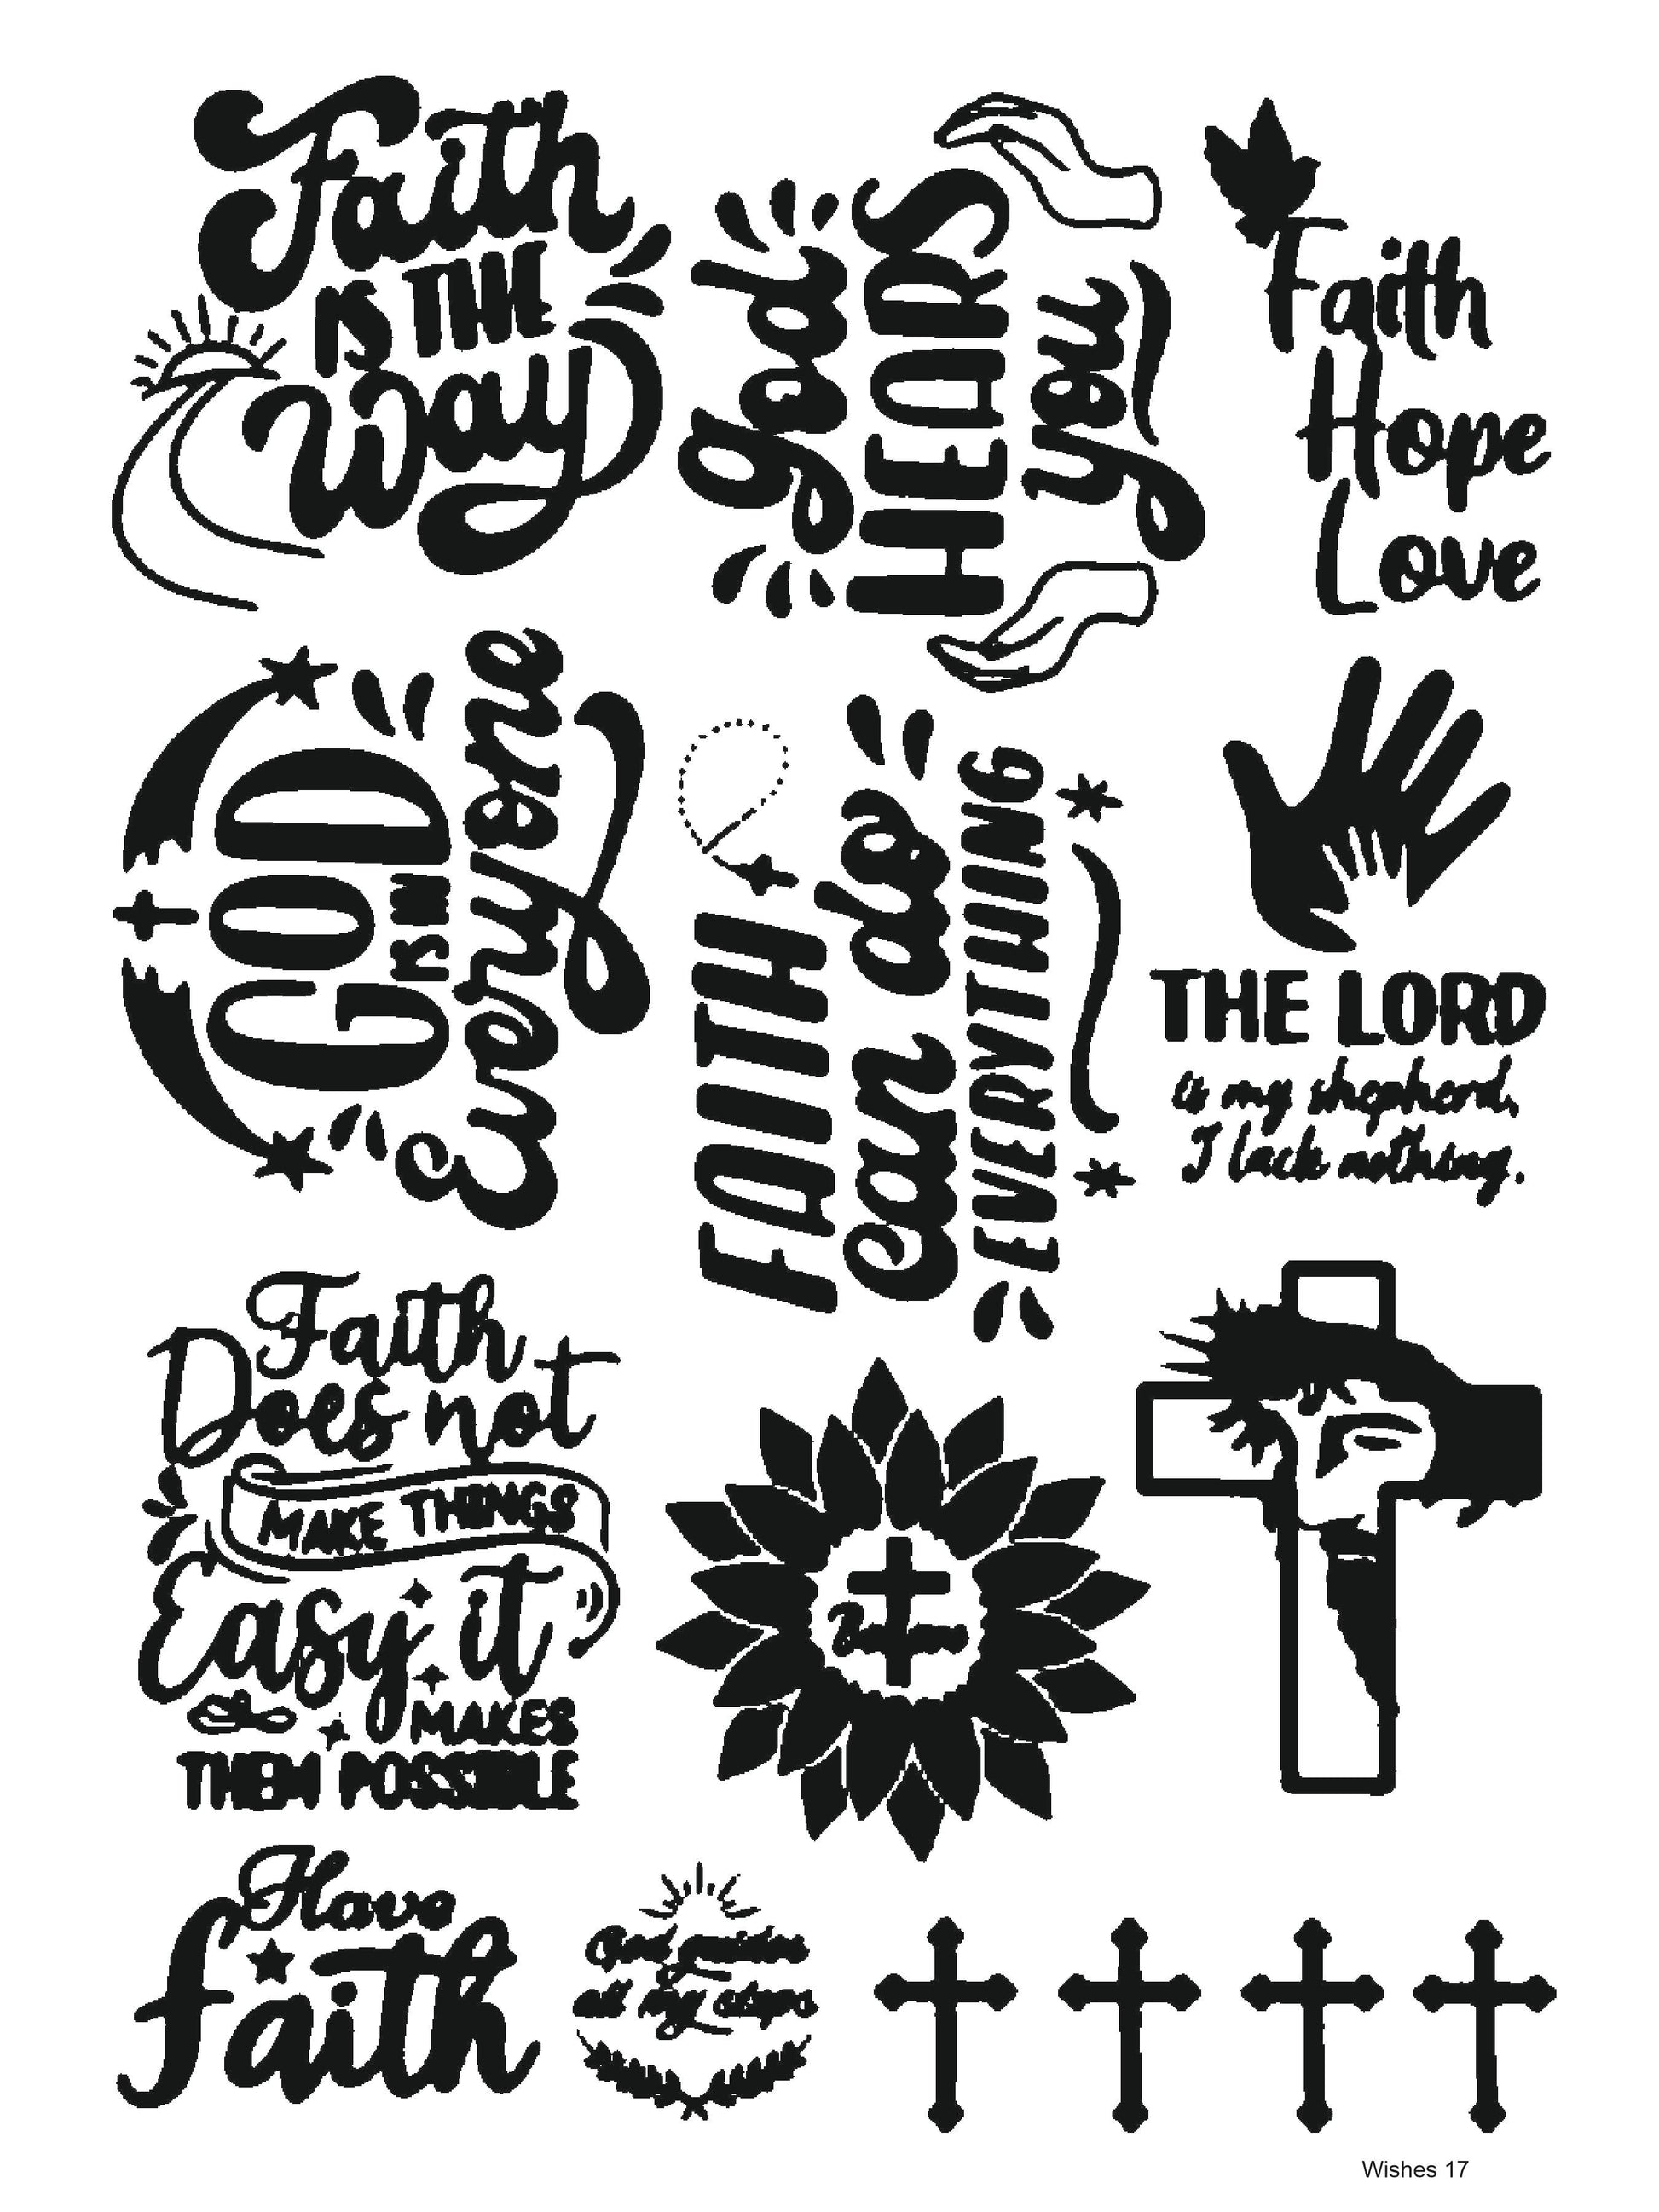 Faith
IS THE
Way
God
HEARS
you
Faith
Hope
Love
GOD
IS MY
Everything
FAITH
can do
EVERYTHING
THE LORD
is my shepherd,
I lack nothing.
Faith
Does not
MAKE THINGS
Easy it
MAKES
THEM POSSIBLE
Have
faith
God guides
all my steps
Wishes 17